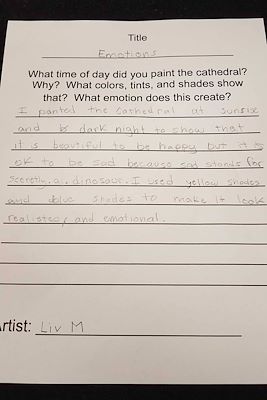 Title
Emotions
What time of day did you paint the cathedral?
Why? What colors, tints, and shades show
that? What emotion does this create?
I panted the cathedral at sunsise
and dark night to show that
it is beautiful to be happy but it is
ok to be sad because sad stands for
secretly.a.dinosaur. I used yellow shades
and blue shades to make it look
realistec, and emotional.
rtist: Liv M